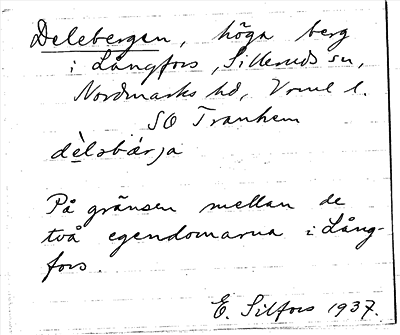 Delebergen, höga berg
i Långfors, Silleruds sn,
Nordmarks hd, Vrml l.
SO Tranhem
dèləbär̀ja
På gränsen mellan de
två egendomarna i Lång-
fors.
E. Silfors 1937.